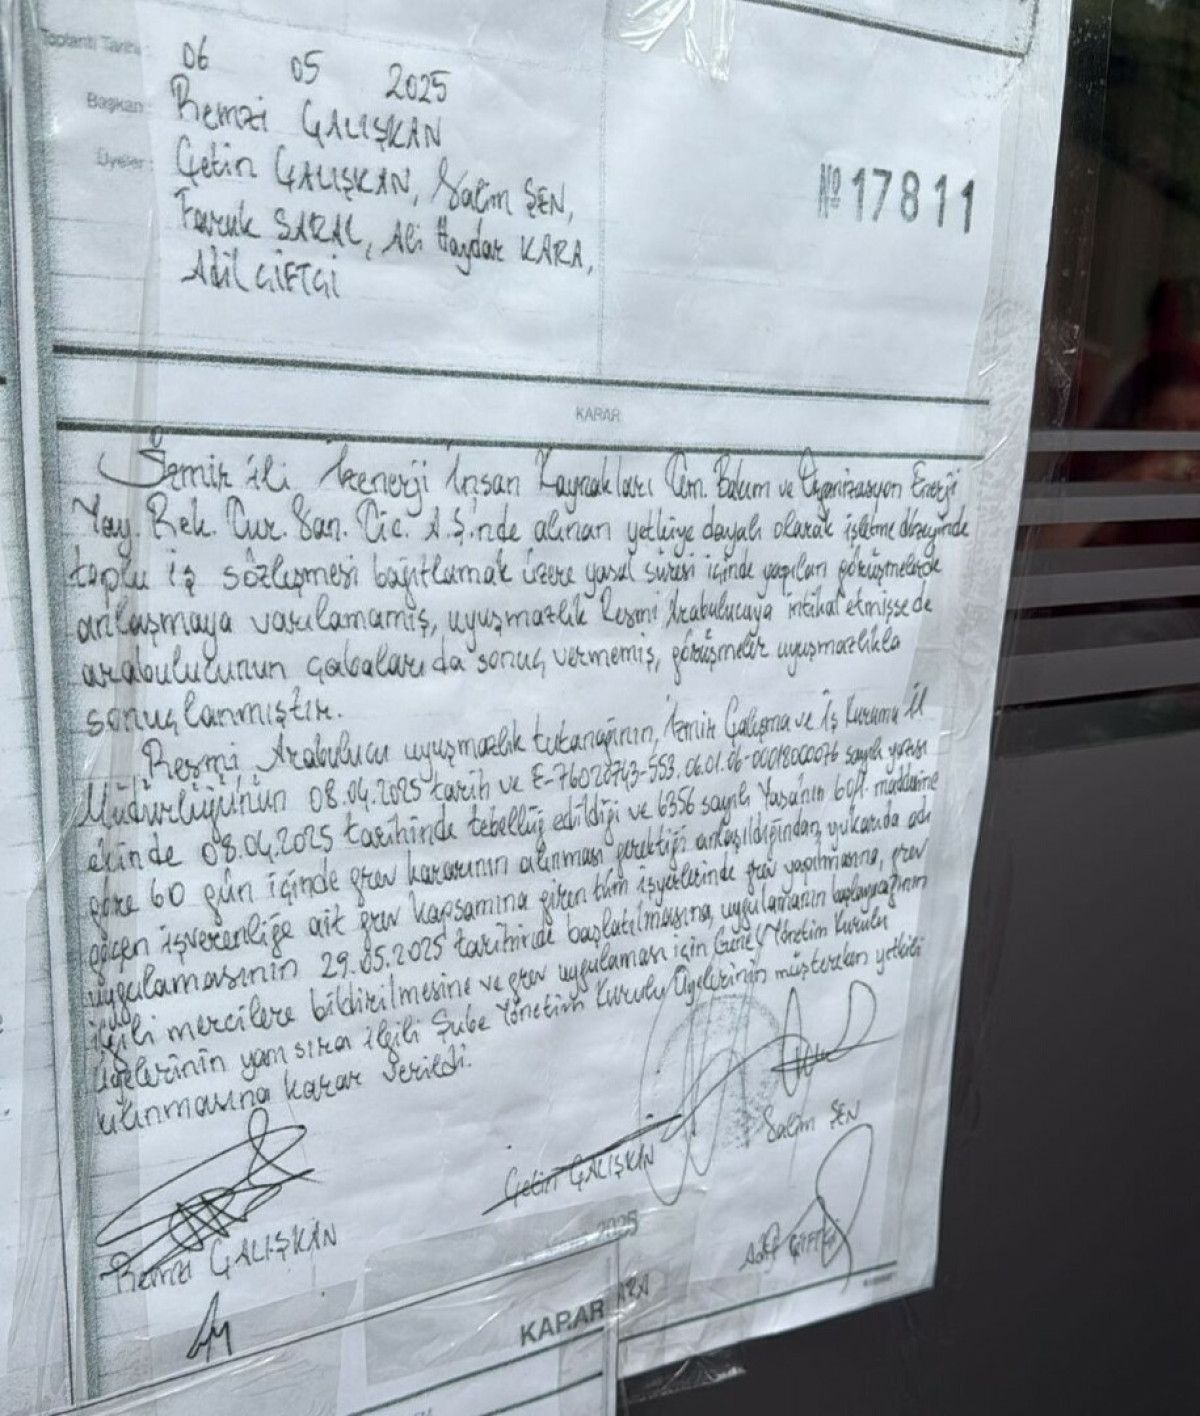 Toplantı Tarihi: 06 05 2025
Başkan: Remzi ÇALIŞKAN
Üyeler: Çetin ÇALIŞKAN, Salim ŞEN,
Faruk SARAL, Ali Haydar KARA,
Adil ÇİFTÇİ
No 17811
KARAR
İzmir ili İzenerji İnsan Kaynakları Tem. Bakım ve Organizasyon Enerji
Yay. Rek. Tur. San. Tic. A.Ş.nde alınan yetkiye dayalı olarak işletme düzeyinde
toplu iş sözleşmesi bağıtlamak üzere yasal süresi içinde yapılan görüşmelerde
anlaşmaya varılamamış, uyuşmazlık Resmi Arabulucaya intikal etmişsede
arabulucunun çabaları da sonuç vermemiş, görüşmeler uyuşmazlıkla
sonuçlanmıştır.
Resmi Arabulucu uyuşmazlık tutanağının, İzmir Çalışma ve İş Kurumu İl
Müdürlüğünün 08.04.2025 tarih ve E-76020743-553.06.01.06-00018000076 sayılı yazısı
ekinde 08.04.2025 tarihinde tebellüğ edildiği ve 6356 sayılı Yasa'nın 60/1. maddesine
göre 60 gün içinde grev kararının alınması gerektiği anlaşıldığından, yukarıda adı
geçen işverenliğe ait grev kapsamına giren tüm işyerlerinde grev yapılmasına, grev
uygulamasının 29.05.2025 tarihinde başlatılmasına, uygulamanın başlayacağının
ilgili mercilere bildirilmesine ve grev uygulaması için Genel Yönetim Kurulu
üyelerinin yanı sıra ilgili Şube Yönetim Kurulu Üyelerinin müştereken yetkili
kılınmasına karar verildi.
Salim ŞEN
Çetin ÇALIŞKAN
Remzi ÇALIŞKAN
Adil ÇİFTÇİ
2025
ARA
KARAR